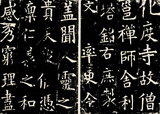 化度寺故僧
邕禪師舍利
塔銘右庶
文率更令
蓋聞人靈
之
稟仁義之和
感秀窮理盡